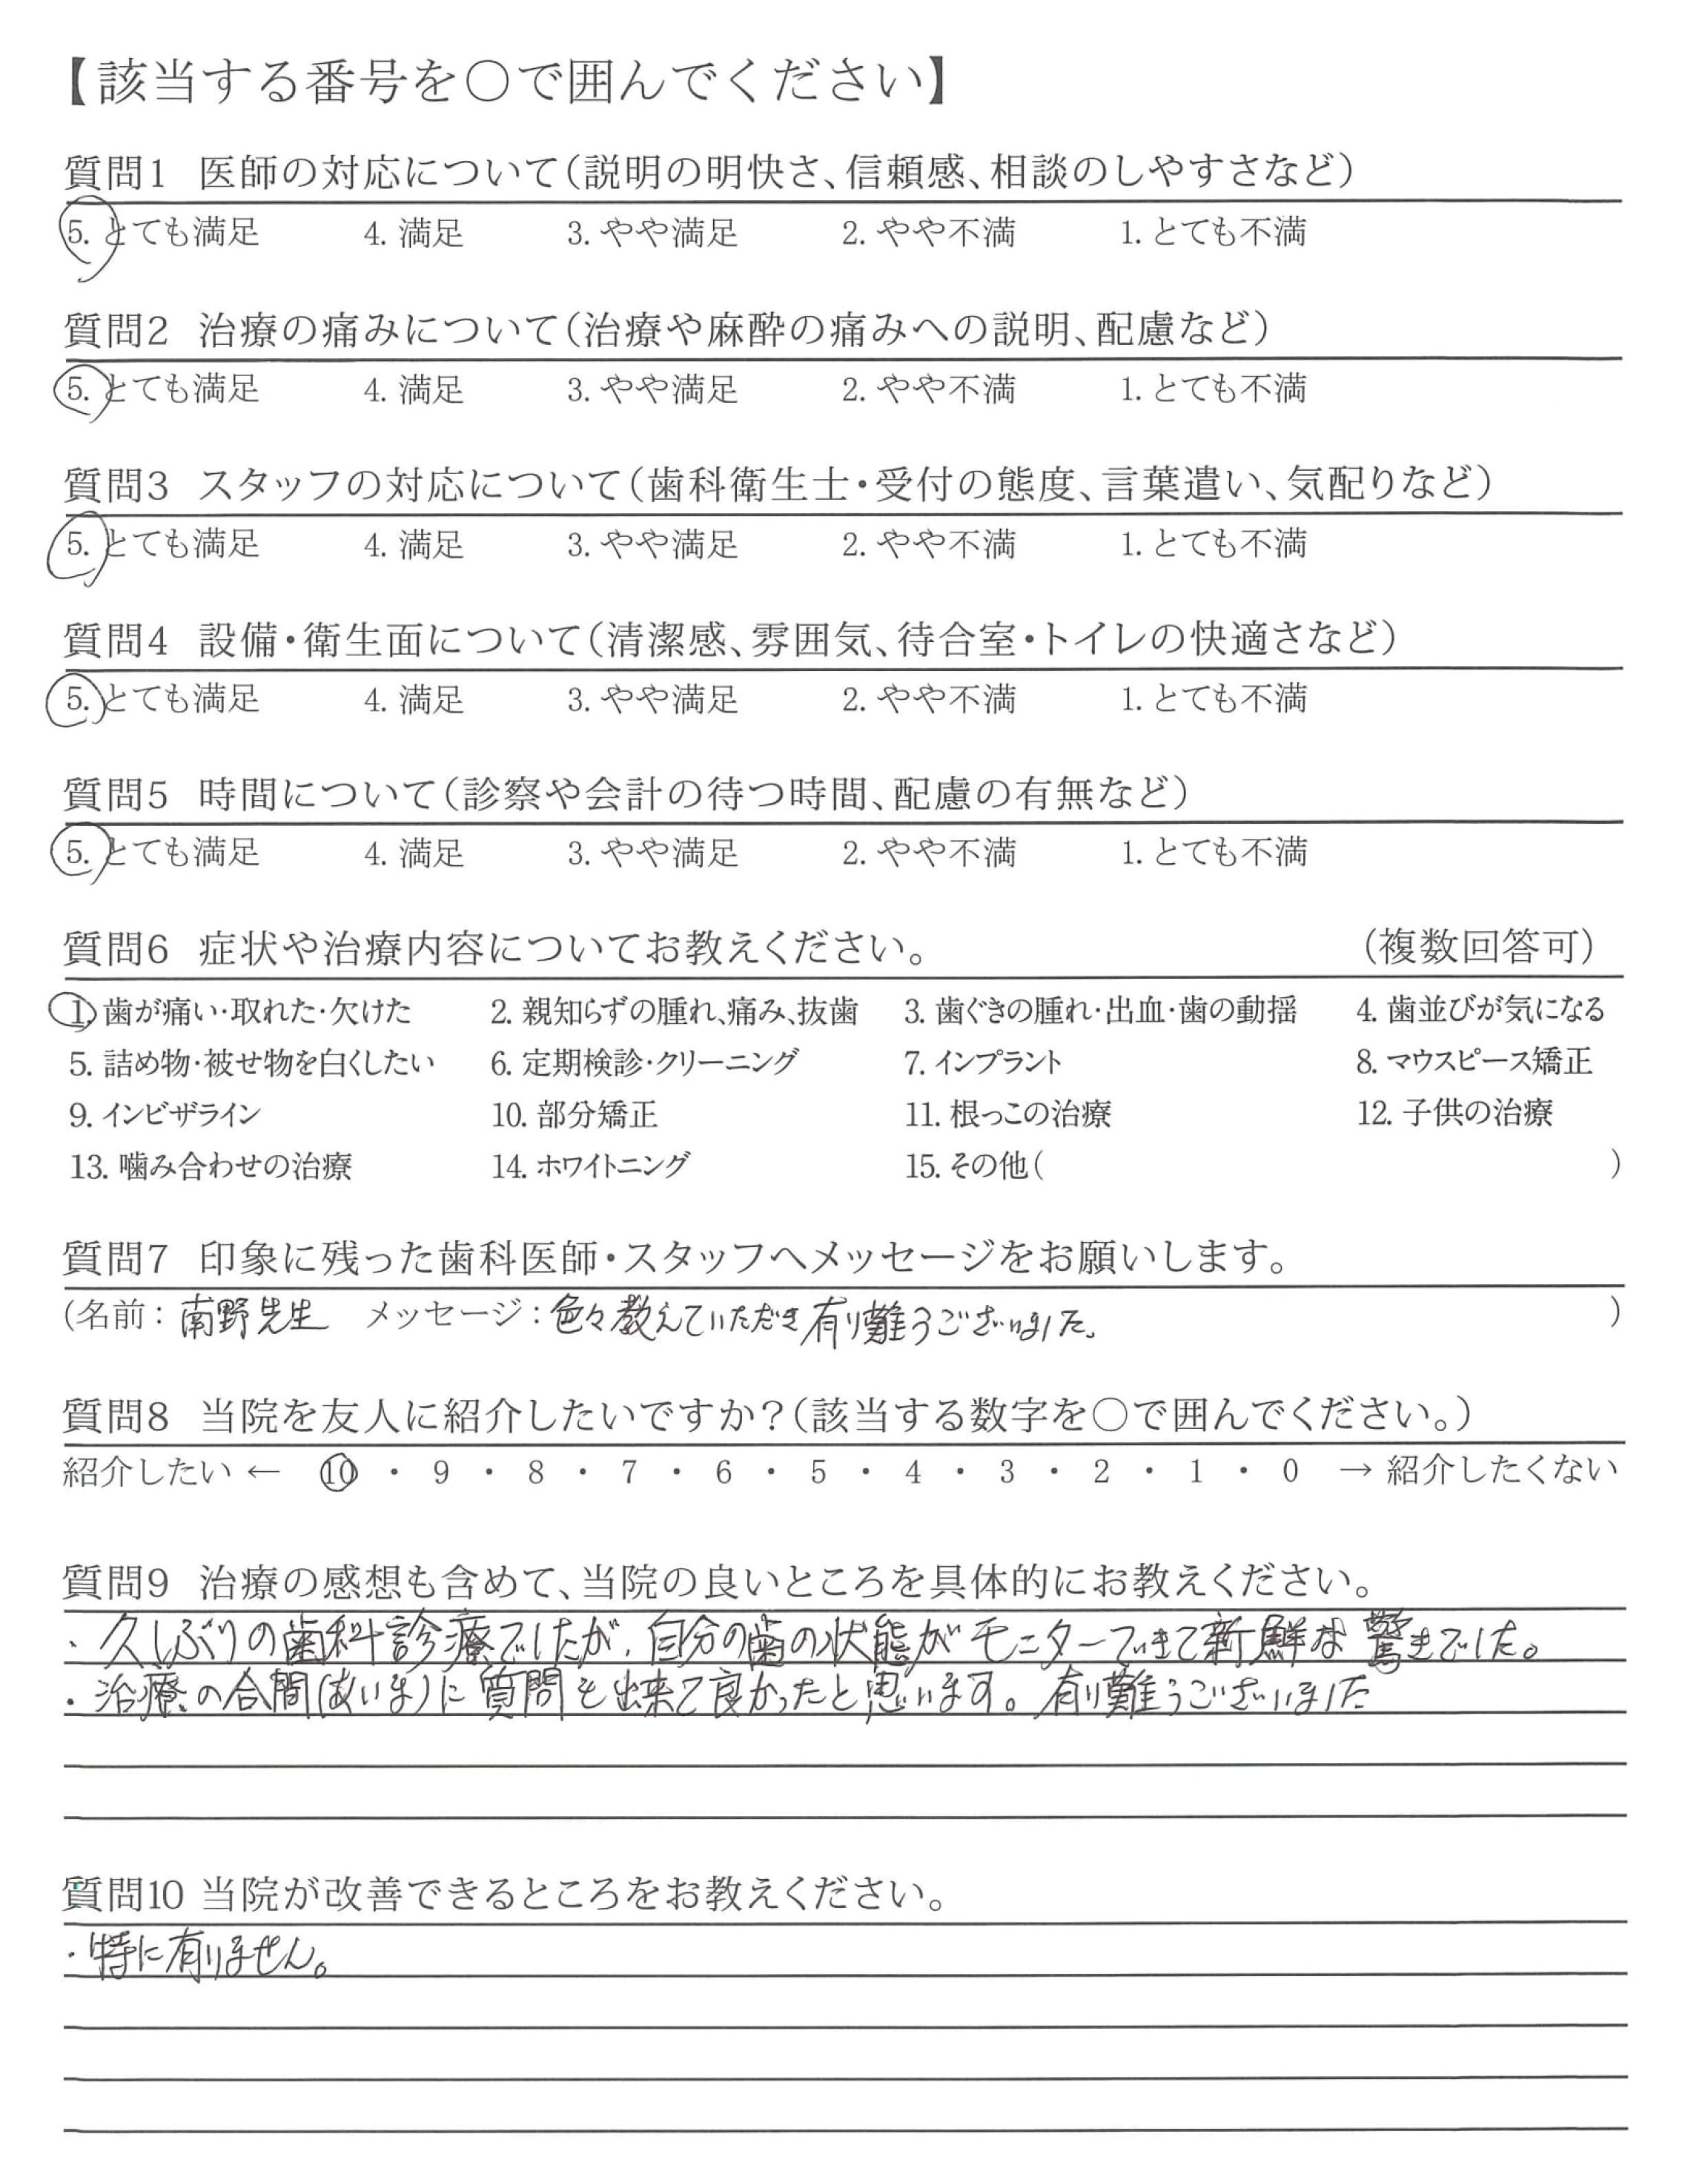 【該当する番号を○で囲んでください】
質問1 医師の対応について(説明の明快さ、信頼感、相談のしやすさなど)
5. とても満足 4. 満足 3. やや満足 2. やや不満 1. とても不満
質問2 治療の痛みについて(治療や麻酔の痛みへの説明、配慮など)
5. とても満足 4. 満足 3. やや満足 2. やや不満 1. とても不満
質問3 スタッフの対応について(歯科衛生士・受付の態度、言葉遣い、気配りなど)
5. とても満足 4. 満足 3. やや満足 2. やや不満 1. とても不満
質問4 設備・衛生面について(清潔感、雰囲気、待合室・トイレの快適さなど)
5. とても満足 4. 満足 3. やや満足 2. やや不満 1. とても不満
質問5 時間について(診察や会計の待つ時間、配慮の有無など)
5. とても満足 4. 満足 3. やや満足 2. やや不満 1. とても不満
質問6 症状や治療内容についてお教えください。 (複数回答可)
1. 歯が痛い・取れた・欠けた 2. 親知らずの腫れ、痛み、抜歯 3. 歯ぐきの腫れ・出血・歯の動揺 4. 歯並びが気になる
5. 詰め物・被せ物を白くしたい 6. 定期検診・クリーニング 7. インプラント 8. マウスピース矯正
9. インビザライン 10. 部分矯正 11. 根っこの治療 12. 子供の治療
13. 噛み合わせの治療 14. ホワイトニング 15. その他( )
質問7 印象に残った歯科医師・スタッフへメッセージをお願いします。
(名前：南野先生 メッセージ：色々教えていただき有り難うございました。 )
質問8 当院を友人に紹介したいですか?(該当する数字を○で囲んでください。)
紹介したい ← 10 ・ 9 ・ 8 ・ 7 ・ 6 ・ 5 ・ 4 ・ 3 ・ 2 ・ 1 ・ 0 → 紹介したくない
質問9 治療の感想も含めて、当院の良いところを具体的にお教えください。
・久しぶりの歯科診療でしたが、自分の歯の状態がモニターできて新鮮な驚きでした。
・治療の合間(あいま)に質問も出来て良かったと思います。有り難うございました
質問10 当院が改善できるところをお教えください。
・特に有りません。